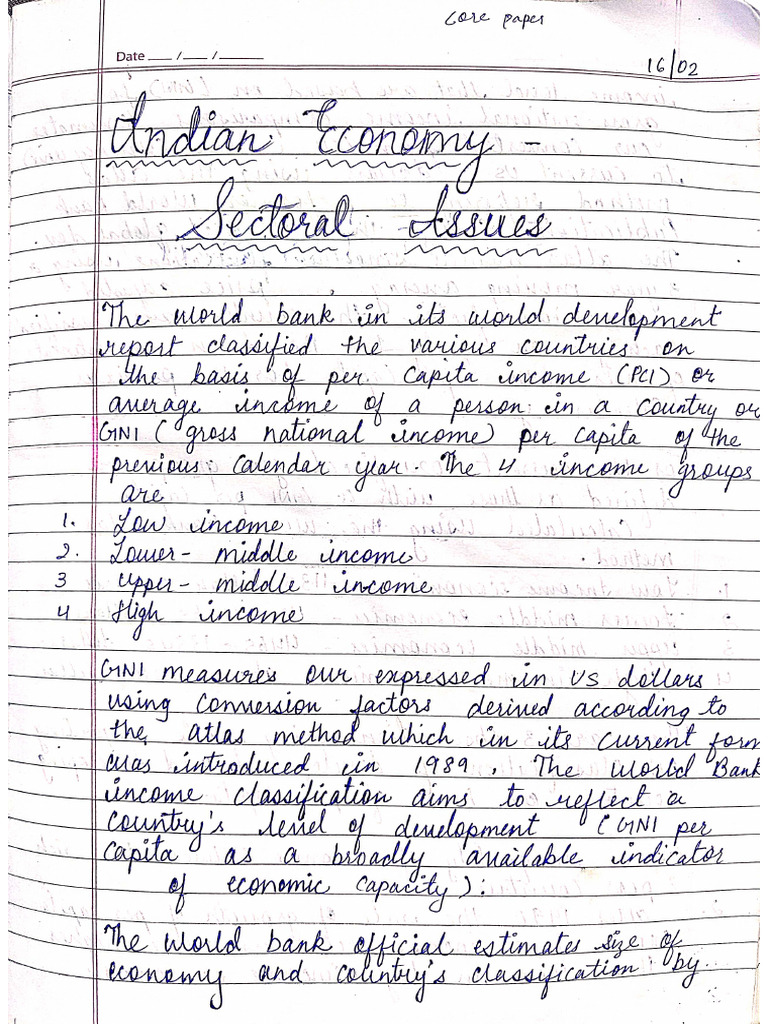 core paper
Date __/__/____
16/02
Indian Economy -
Sectoral Issues
The world bank in its world development
report classified the various countries on
the basis of per capita income (PCI) or
average income of a person in a country or
GNI (gross national income) per capita of the
previous calendar year. The 4 income groups
are
1. Low income
2. Lower-middle income
3 Upper-middle income
4 High income
GNI measures our expressed in US dollars
using conversion factors derived according to
the atlas method which in its current form
was introduced in 1989. The World Bank
income classification aims to reflect a
country's level of development (GNI per
capita as a broadly available indicator
of economic capacity):
The world bank official estimates size of
economy and country's classification by